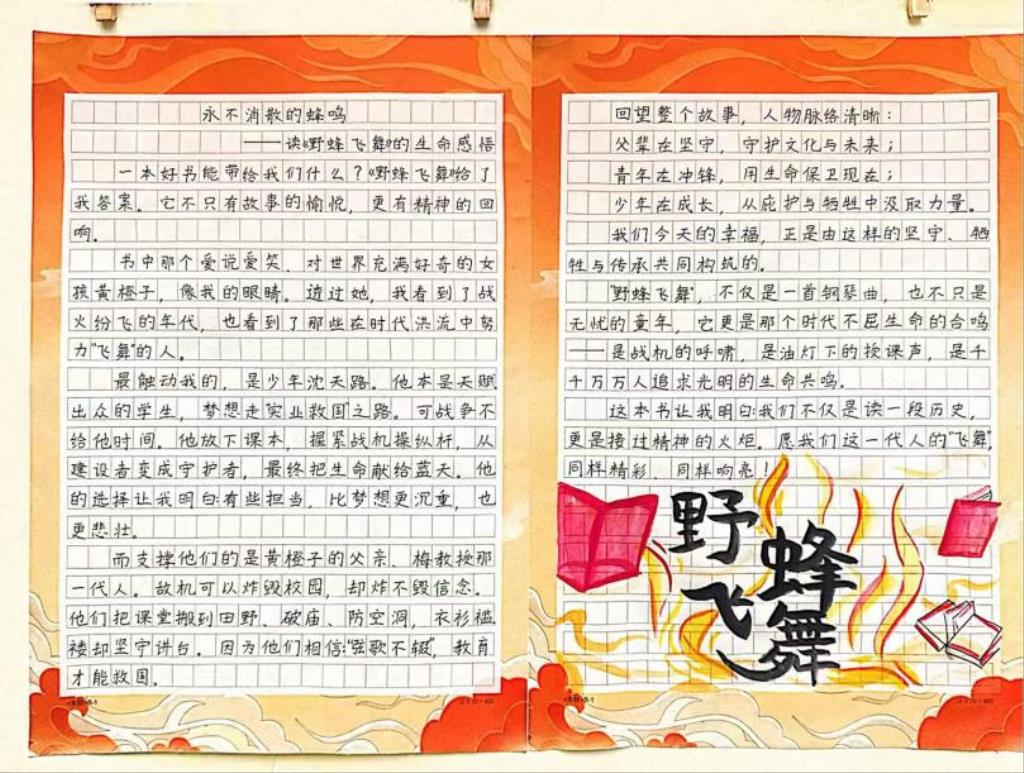 永不消散的蜂鸣
——读《野蜂飞舞》的生命感悟
一本好书能带给我们什么？《野蜂飞舞》给了
我答案。它不只有故事的愉悦，更有精神的回
响。
书中那个爱说爱笑、对世界充满好奇的女
孩黄橙子，像我的眼睛。透过她，我看到了战
火纷飞的年代，也看到了那些在时代洪流中努
力"飞舞"的人。
最触动我的，是少年沈天路。他本是天赋
出众的学生，梦想走"实业救国"之路。可战争不
给他时间。他放下课本，握紧战机操纵杆，从
建设者变成守护者，最终把生命献给蓝天。他
的选择让我明白：有些担当，比梦想更沉重，也
更悲壮。
而支撑他们的是黄橙子的父亲、梅教授那
一代人。敌机可以炸毁校园，却炸不毁信念。
他们把课堂搬到田野、破庙、防空洞，衣衫褴
褛却坚守讲台。因为他们相信："弦歌不辍"，教育
才能救国。
回望整个故事，人物脉络清晰：
父辈在坚守，守护文化与未来；
青年在冲锋，用生命保卫现在；
少年在成长，从庇护与牺牲中汲取力量。
我们今天的幸福，正是由这样的坚守、牺
牲与传承共同构筑的。
"野蜂飞舞"，不仅是一首钢琴曲，也不只是
无忧的童年，它更是那个时代不屈生命的合鸣
——是战机的呼啸，是油灯下的授课声，是千
千万万人追求光明的生命共鸣。
这本书让我明白：我们不仅是读一段历史，
更是接过精神的火炬。愿我们这一代人的"飞舞"，
同样精彩、同样响亮！
野蜂
飞舞